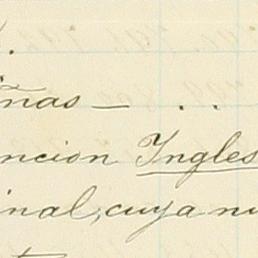 ñas — . .
ncion Ingles
inal, cuya nu